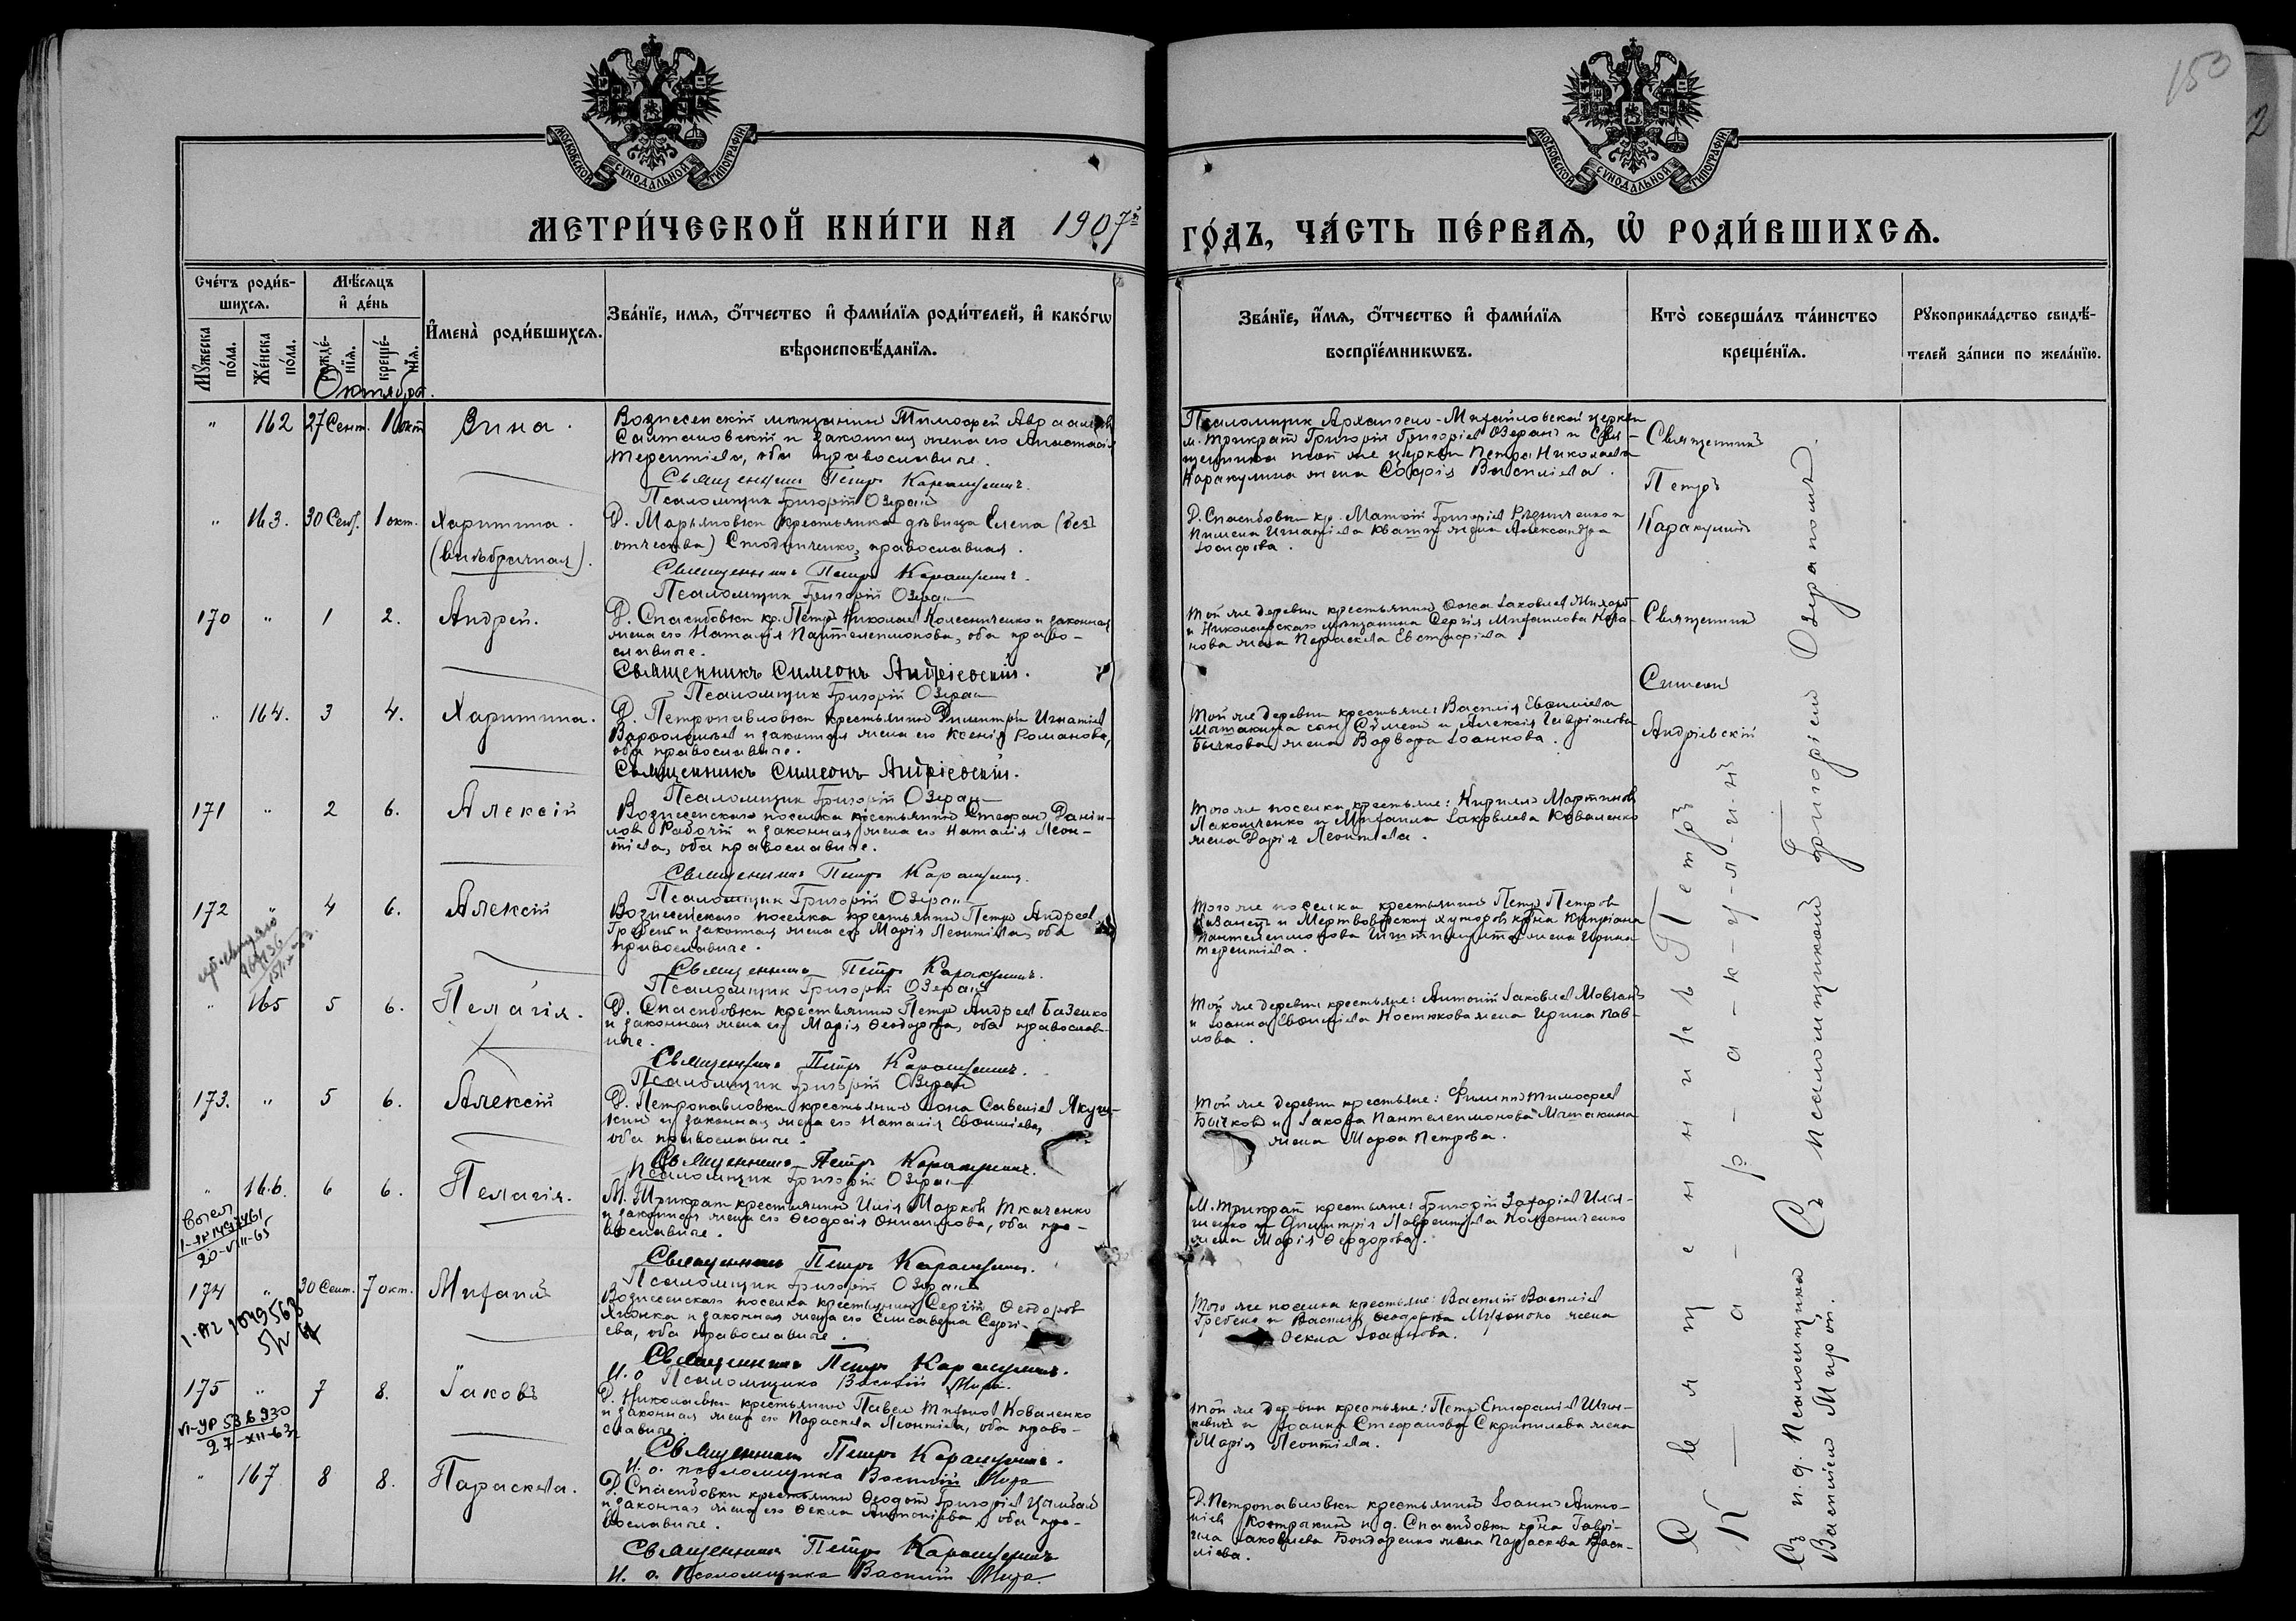 150
2
МОСКОВСКОЙ СУНОДАЛЬНОЙ ТИПОГРАФІИ
МОСКОВСКОЙ СУНОДАЛЬНОЙ ТИПОГРАФІИ
МЕТРИ́ЧЕСКОЙ КНИ́ГИ НА 1907й
ГО́ДЪ, ЧА́СТЬ ПЕ́РВАѦ, Ѡ҆ РОДИ́ВШИХСѦ.
Сче́тъ роди́в-
шихсѧ.
Мꙋжеска по́ла.
Же́нска по́ла.
Мѣ́сѧцъ
и҆ де́нь
рожде́-
нїѧ.
креще́-
нїѧ.
И҆мена̀ роди́вшихсѧ.
Зва́нїе, имѧ, ѻ҆́тчество и҆ фами́лїѧ роди́телей, и҆ како́гѡ
вѣроисповѣ́данїѧ.
Зва́нїе, и҆́мѧ, ѻ҆́тчество и҆ фами́лїѧ
воспрїе́мникѡвъ.
Кто̀ соверша́лъ та́инство
креще́нїѧ.
Рꙋкоприкла́дство свидѣ́-
телей за́писи по жела́нїю.
Октября.
" 162 27 Сент. 1 окт Зина.
Вознесенскій мѣщанинъ Тимофей Авраамовъ
Салтановскій и законная жена его Анастасія
Терентіева, оба православные.
Священникъ Петръ Каракулинъ.
Псаломщик Григорій Озеранъ
Псаломщик Архангело-Михайловской церкви
м. Трикратъ Григорій Григоріев Озеранъ и Свя-
щенника той же церкви Петра Николаева
Каракулина жена Софія Василіева.
Священникъ
Петръ
Каракулинъ
" 163. 30 Сент. 1 окт. Харитина.
(внѣбрачная).
Д. Марьяновки крестьянка дѣвица Елена (безъ
отчества) православная.
Священникъ Петръ Каракулинъ.
Псаломщик Григорій Озеранъ
Д. Спасибовки кр. Матѳій Григоріев
Пимена Игнатіева жена Александра
Іосифова.
170 " 1 2. Андрей.
Д. Спасибовки кр. Петръ Николаев Колесниченко и законная
жена его Наталія Пантелеимонова, оба право-
славные.
Священникъ Симеонъ Андріевскій.
Псаломщик Григорій Озеранъ
Той же деревни крестьянинъ Іаковлев
и Николаевскаго мѣщанина Сергія Михаилова
жена Параскева Евстафіева.
Священникъ
Симеонъ
Андріевскій
" 164. 3 4. Харитина.
Д. Петропавловки крестьянинъ Димитрій Игнатіев
Варѳоломѣев и законная жена его Ксенія Романова,
оба православные.
Священникъ Симеонъ Андріевскій.
Псаломщик Григорій Озеранъ
Той же деревни крестьяне: Василія Евѳиміева
Мытакина сынъ Сѵмеон и Алексія Гавріилова
Бычкова жена Варвара Іоаннова.
171 " 2 6. Алексій
Вознесенскаго поселка крестьянинъ Стефанъ Даніи-
ловъ Рабочій и законная жена его Наталія Леон-
тіева, оба православные.
Священникъ Петръ Каракулинъ.
Псаломщик Григорій Озеранъ
Того же поселка крестьяне: Кириллъ Мартиновъ
Лакомченко и Михаила Іаковлева Коваленко
жена Дарія Леонтіева.
172 " 4 6. Алексій
Вознесенскаго поселка крестьянинъ Петръ Андреев
Гребенъ и законная жена его Марія Леонтіева, оба
православные.
Священникъ Петръ Каракулинъ.
Псаломщик Григорій Озеранъ
Того же поселка крестьянинъ Петръ Петров
Казанецъ и Мертвоводскихъ хуторовъ кр-на Кипріана
Пантелеимонова жена Ирина
Терентіева.
" 165 5 6. Пелагія.
Д. Спасибовки крестьянинъ Петръ Андреев Базенко
и законная жена его Марія Ѳеодорова, оба православ-
ные.
Священникъ Петръ Каракулинъ.
Псаломщик Григорій Озеранъ
Той же деревни крестьяне: Антоній Іаковлев Мовчанъ
и Іоанна Евѳиміева Костюкова жена Ирина Пав-
лова.
173. " 5 6. Алексій
Д. Петропавловки крестьянинъ Іона Савеліев Якуш-
кинъ и законная жена его Наталія Евѳиміева,
оба православные.
Священникъ Петръ Каракулинъ.
Псаломщик Григорій Озеранъ
Той же деревни крестьяне: Филиппъ Тимофеев
Бычковъ и Іакова Пантелеимонова Мытакина
жена Марѳа Петрова.
" 166. 6 6. Пелагія.
М. Трикратъ крестьянинъ Илія Марковъ Ткаченко
и законная жена его Ѳеодосія Онисимова, оба пра-
вославные.
Священникъ Петръ Каракулинъ.
Псаломщик Григорій Озеранъ
М. Трикратъ крестьяне: Григорій Захаріев Илья-
шенко и Димитрія Лаврентіева Колесниченко
жена Марія Ѳеодорова.
20-VIII-65
174 " 30 Сент. 7 окт. Михаилъ
Вознесенскаго поселка крестьянинъ Сергій Ѳеодоров
и законная жена его Елисавета Серги-
ева, оба православные.
Священникъ Петръ Каракулинъ.
И. о Псаломщика Василій Мира.
Того же поселка крестьяне: Василій Василіев
Гребенъ и Василія Ѳеодорова жена
Ѳекла Іоаннова.
175 " 7 8. Іаковъ
Д. Николаевки крестьянинъ Павелъ Коваленко
и законная жена его Параскева Леонтіева, оба право-
славные.
Священникъ Петръ Каракулинъ.
И. о. псаломщика Василій Мира
Той же деревни крестьяне: Петръ Епифаніев
и Іоанна Стефанова Скрипилева жена
Марія Леонтіева.
VI-УР 536930
27-XII-63
" 167 8 8. Параскева.
Д. Спасибовки крестьянинъ Ѳеодотъ Григоріев Цымбалъ
и законная жена его Ѳекла Антоніева, оба пра-
вославные.
Священникъ Петръ Каракулинъ
И. о. псаломщика Василій Мира.
Д. Петропавловки крестьянинъ Іоаннъ Анто-
ніев и д. Спасибовки кр-на Гаврі-
ила Іаковлева Бондаренко жена Параскева Васи-
ліева.
Священникъ Петръ
К—а—р—а-к-у-л-и-нъ
Съ псаломщикомъ Григоріемъ Озераномъ.
Съ и. д. псаломщика
Василіем Мирой.